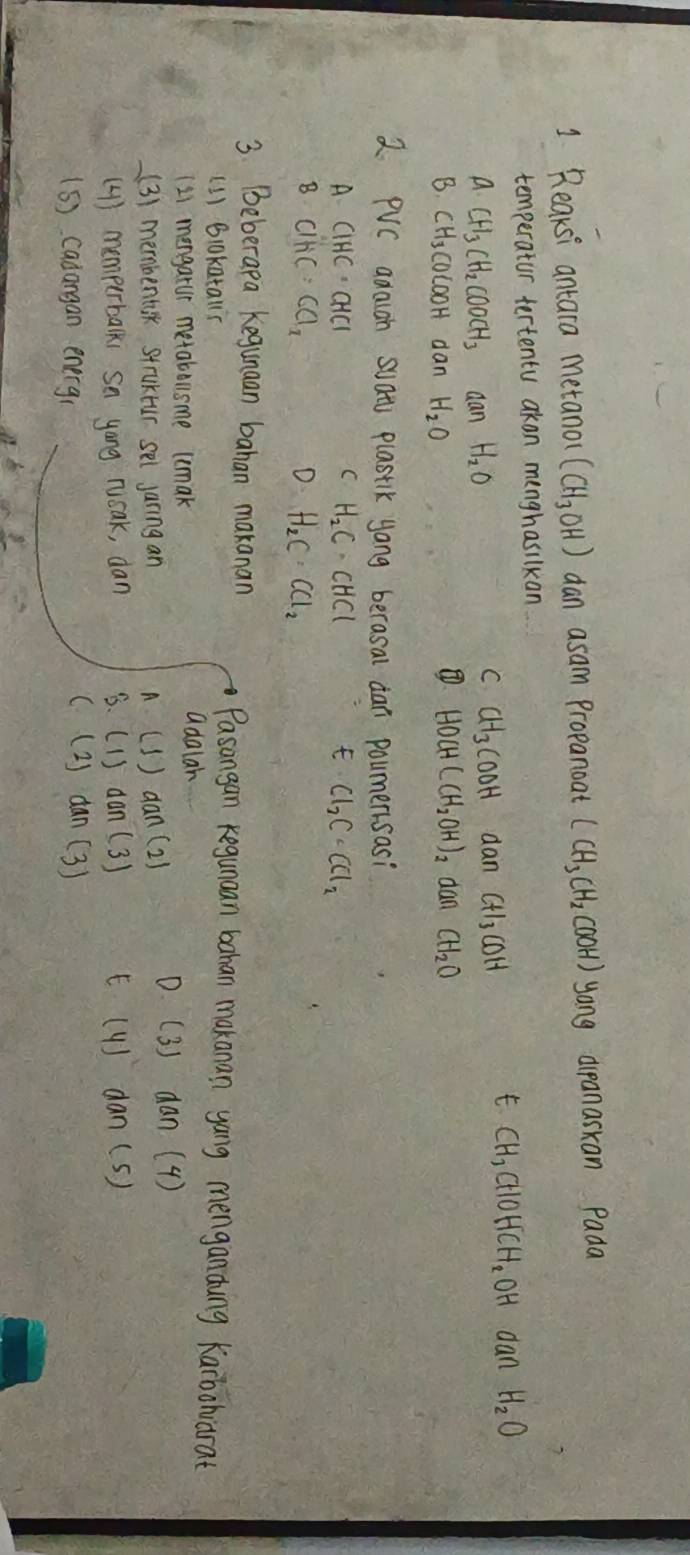 1 Reaksi antara metanol (CH₃OH) dan asam Propanoat (CH₃CH₂COOH) yang dipanaskan Pada
temperatur tertentu akan menghasilkan ...
A CH₃CH₂COOCH₃ dan H₂O C CH₃COOH dan CH₃COH E CH₃CHOHCH₂OH dan H₂O
B. CH₃COCOOH dan H₂O D. HOCH(CH₂OH)₂ dan CH₂O
2 PVC adalah suatu plastik yang berasal dari Polimerisasi
A. ClHC=CHCl C H₂C=CHCl E. Cl₂C=CCl₂
B. ClHC=CCl₂ D. H₂C=CCl₂
3. Beberapa kegunaan bahan makanan
(1) Biokatalis
(2) mengatur metabolisme lemak
(3) membentuk struktur sel jaringan
(4) memperbaiki sel yang rusak, dan
(5) cadangan energi
Pasangan kegunaan bahan makanan yang mengandung karbohidrat
adalah ...
A. (1) dan (2) D. (3) dan (4)
B. (1) dan (3) E. (4) dan (5)
C (2) dan (3)